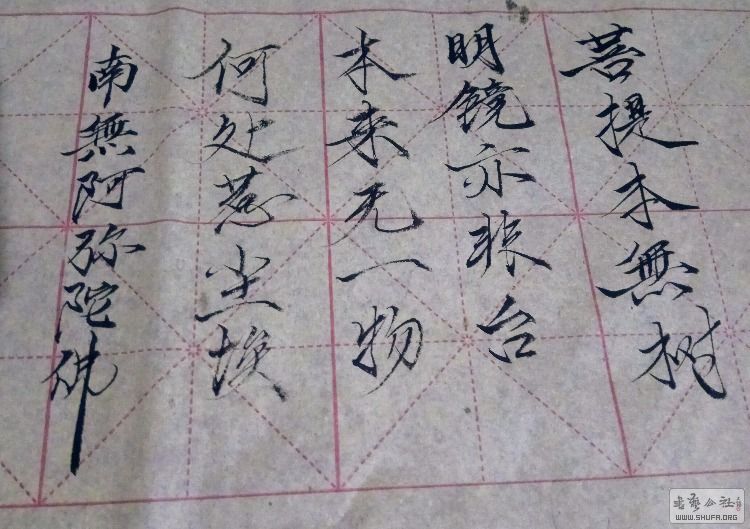 菩提本無树
明镜亦非台
本来无一物
何处惹尘埃
南無阿弥陀佛
书艺公社
WWW.SHUFA.ORG